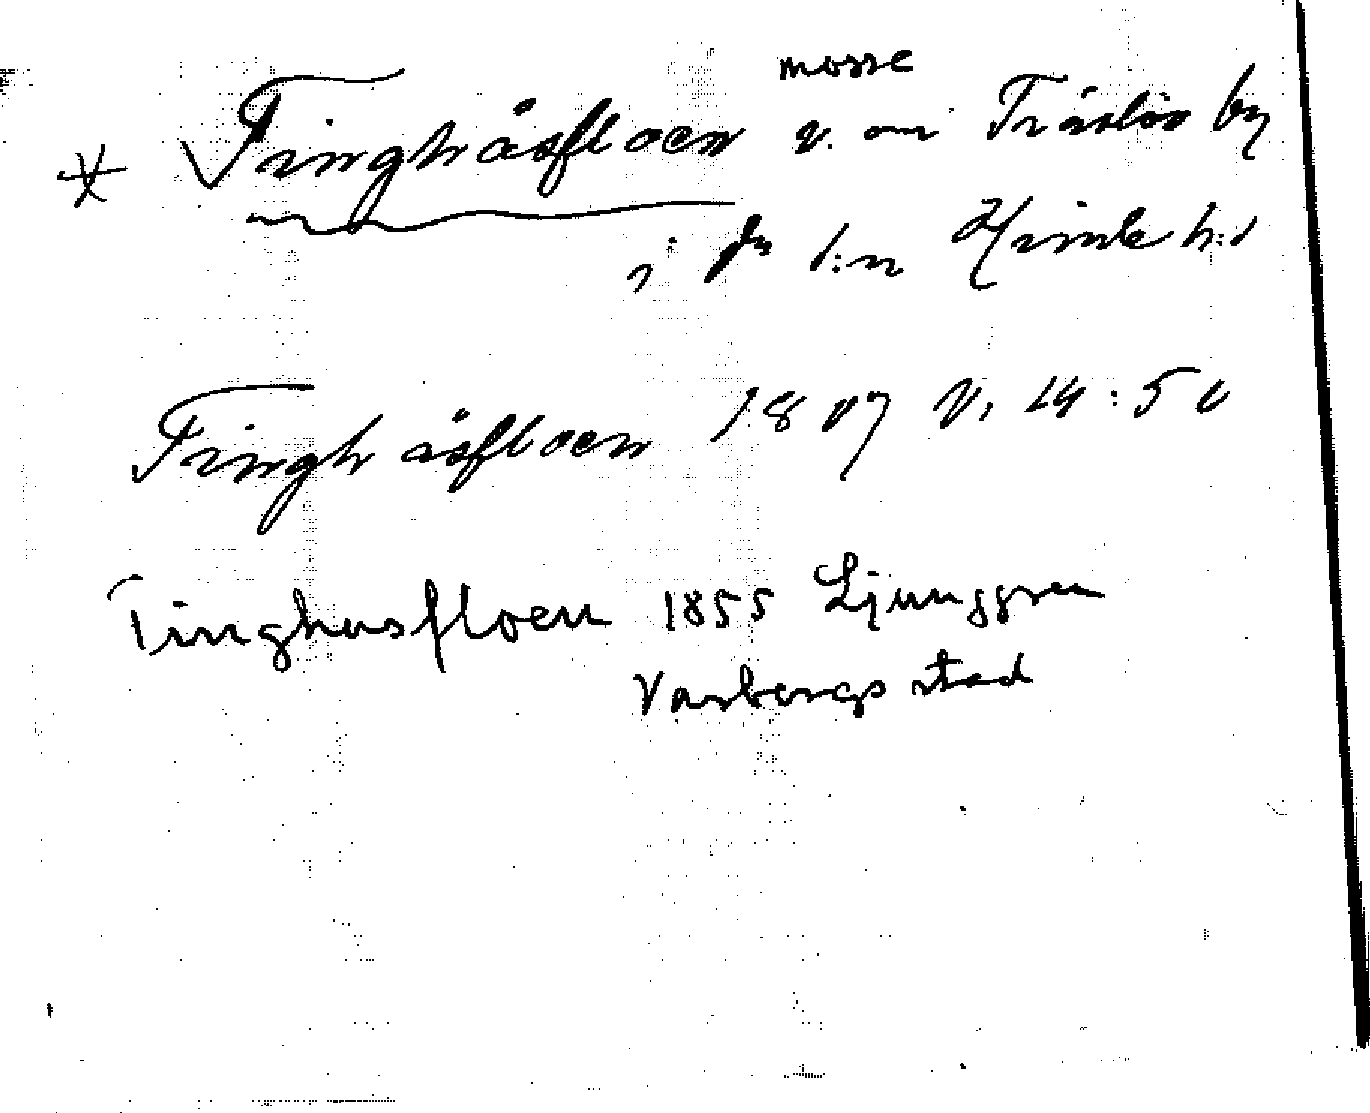 mosse
* Tinghåsfloen v. om Träslöv by
i sn l:n Himle h:d
Tinghåsfloen 1807 V. 14:50
Tinghusfloen 1855 Ljunggren
Varbergs stad